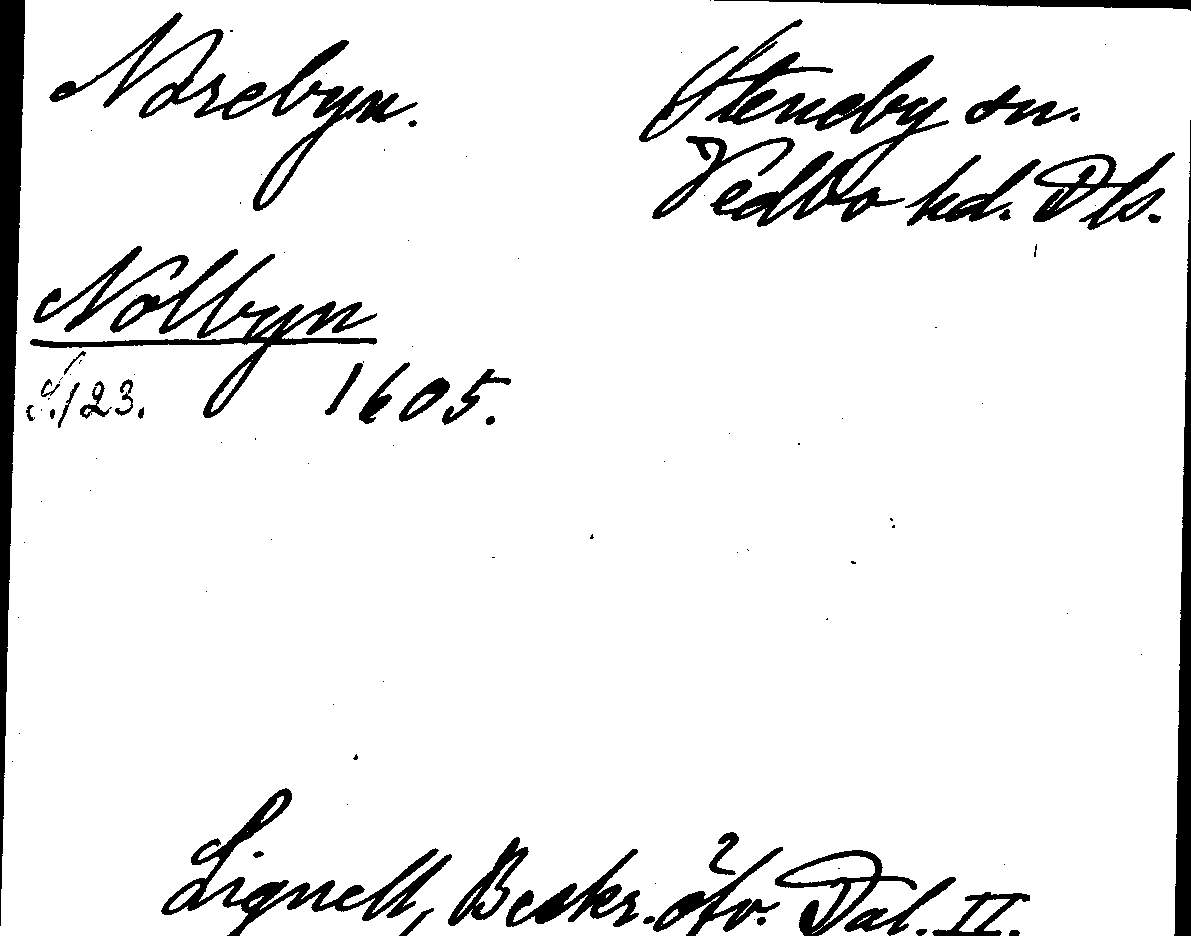 Norebyn.
Steneby sn.
Vedbo hd. Dls.
Nolbyn
S. 123. 1605.
Lignell, Beskr. öfv. Dal. II.